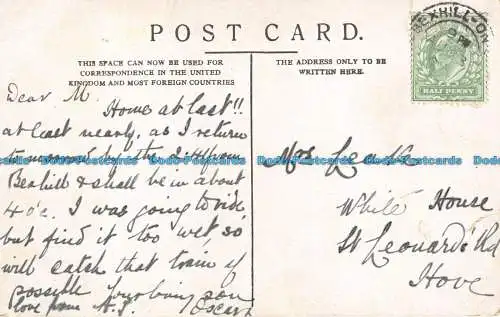 POST CARD.
THIS SPACE CAN NOW BE USED FOR
CORRESPONDENCE IN THE UNITED
KINGDOM AND MOST FOREIGN COUNTRIES
THE ADDRESS ONLY TO BE
WRITTEN HERE.
BEXHILL-ON
HALF PENNY
Dear M.
Home at last!!
at least nearly, as I return
tomorrow by the from
Bexhill & shall be in about
4 o'c. I was going to ride
but find it too wet, so
will catch that train if
possible your loving son
love from Oscar
Mrs
White House
St Leonards Rd
Hove
Dodo-Postcards Dodo-Postcards Dodo-Postcards Dodo-Postcards